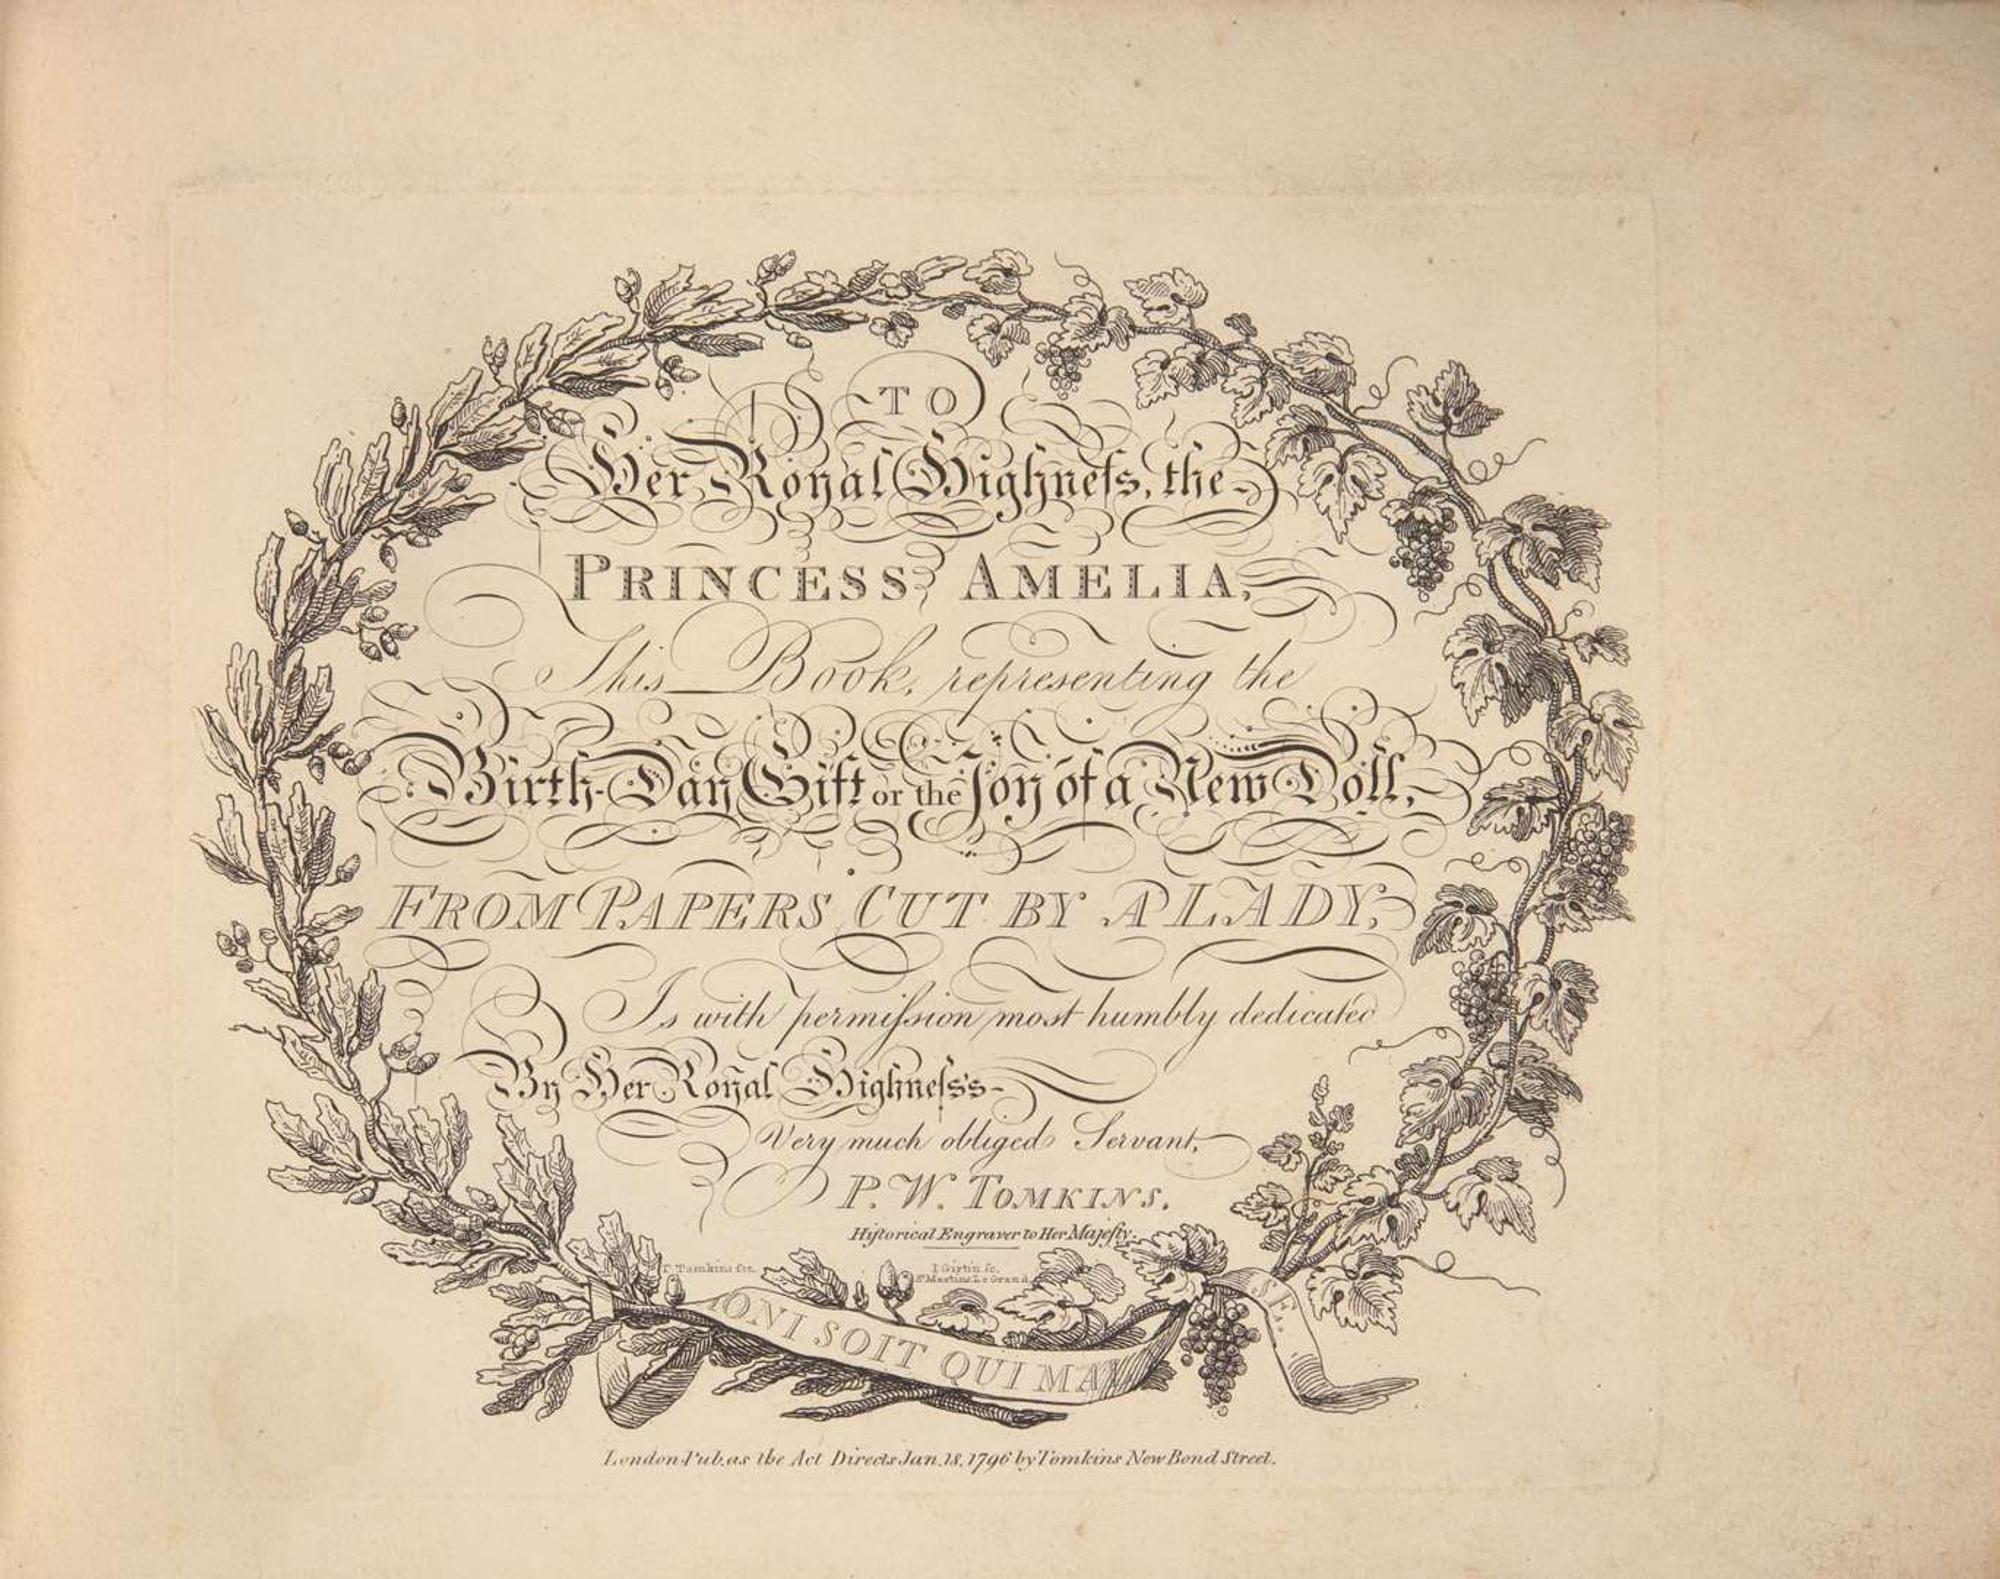 TO
Her Royal Highneſs, the
PRINCESS AMELIA,
This Book, representing the
Birth-Day Gift or the Joy of a New Doll,
FROM PAPERS CUT BY A LADY,
Is with permiſsion most humbly dedicated
By Her Royal Highneſs's
Very much obliged Servant,
P. W. TOMKINS.
Hiſtorical Engraver to Her Majeſty.
T. Tomkins fec.
I Girtin sc.
St. Martins Le Grand
ONI SOIT QUI MAL
SE.
London Pub. as the Act Directs Jan. 18. 1796 by Tomkins New Bond Street.